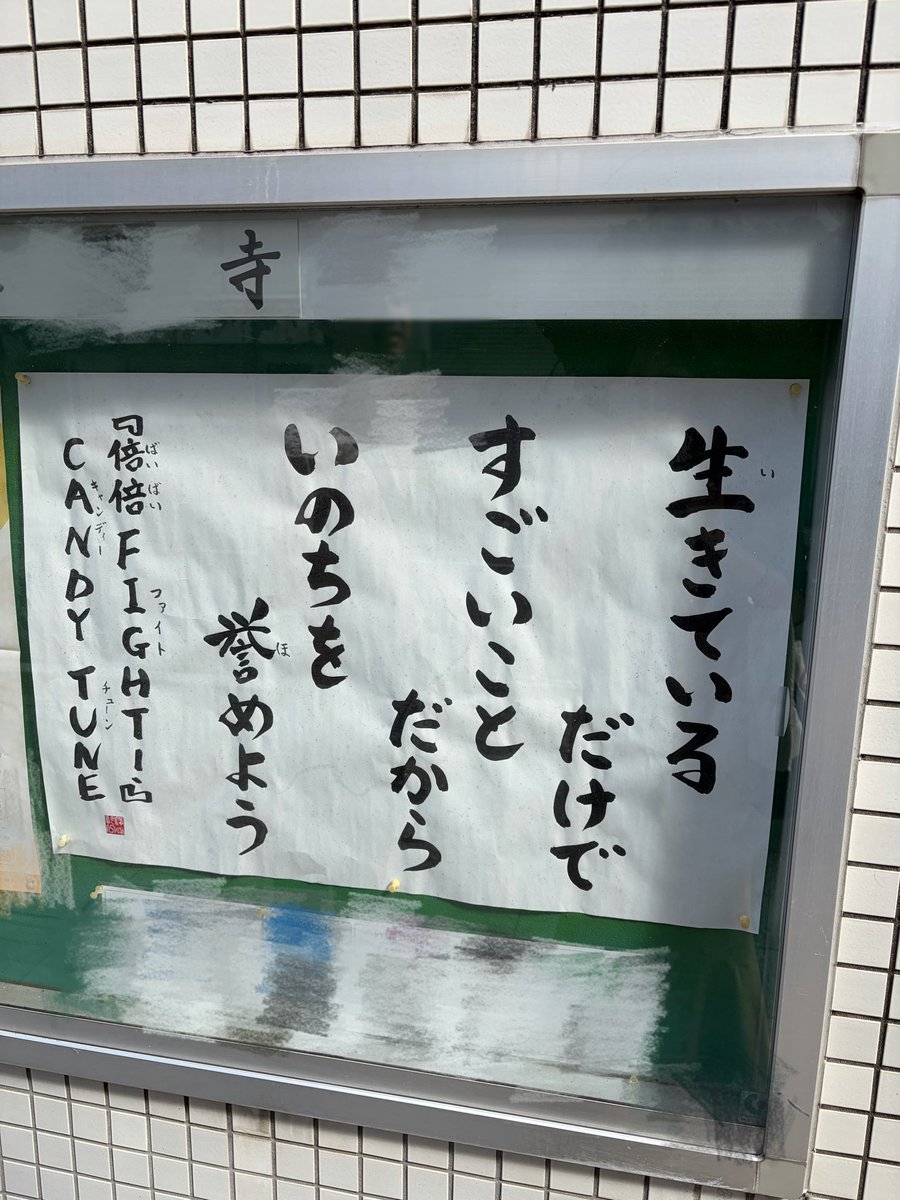 寺
生きている
だけで
すごいこと
だから
いのちを
誉めよう
『倍倍FIGHT!』
CANDY TUNE
い
ほ
ばいばい
ファイト
キャンディー
チューン